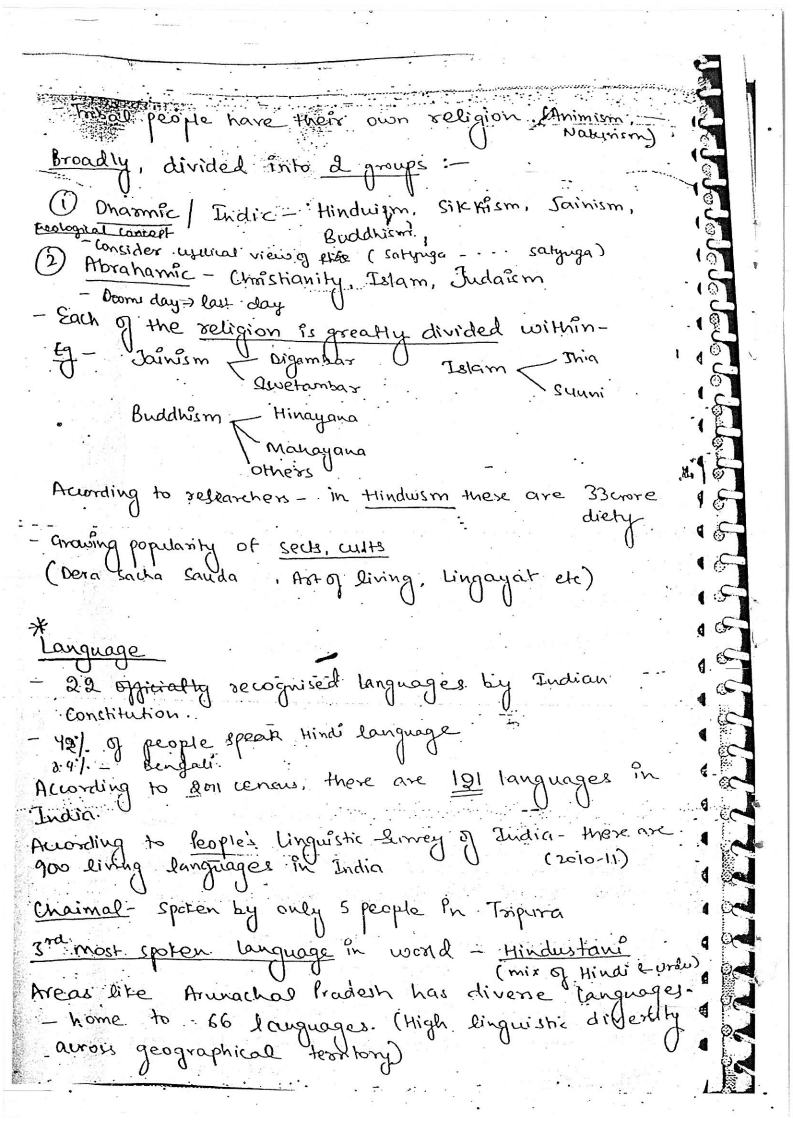 - Tribal people have their own religion (Animism,
Naturism)
Broadly, divided into 2 groups :-
① Dharmic / Indic - Hinduism, Sikkism, Jainism,
Ecological concept
Buddhism,
- Consider cyclical view of life (Satyuga - .... satyuga)
② Abrahamic - Christianity, Islam, Judaism
- Dooms day → last day
- Each of the religion is greatly divided within-
Eg - Jainism Digambar Islam Shia
Swetambar Sunni
Buddhism Hinayana
Mahayana
others
According to researchers - in Hinduism there are 33 crore
diety
- Growing popularity of sects, cults
(Dera Sacha Sauda, Art of living, Lingayat etc)
*
Language
- 22 officially recognised languages by Indian
Constitution.
- 42% of people speak Hindi language
- Bengali.
According to 2011 census, there are 121 languages in
India.
According to People's Linguistic Survey of India - there are
900 living languages in India (2010-11)
Chaimal - spoken by only 5 people in Tripura
3rd most spoken language in world - Hindustani
(mix of Hindi & urdu)
Areas like Arunachal Pradesh has diverse languages.
- home to 66 languages. (High linguistic diversity
across geographical territory)